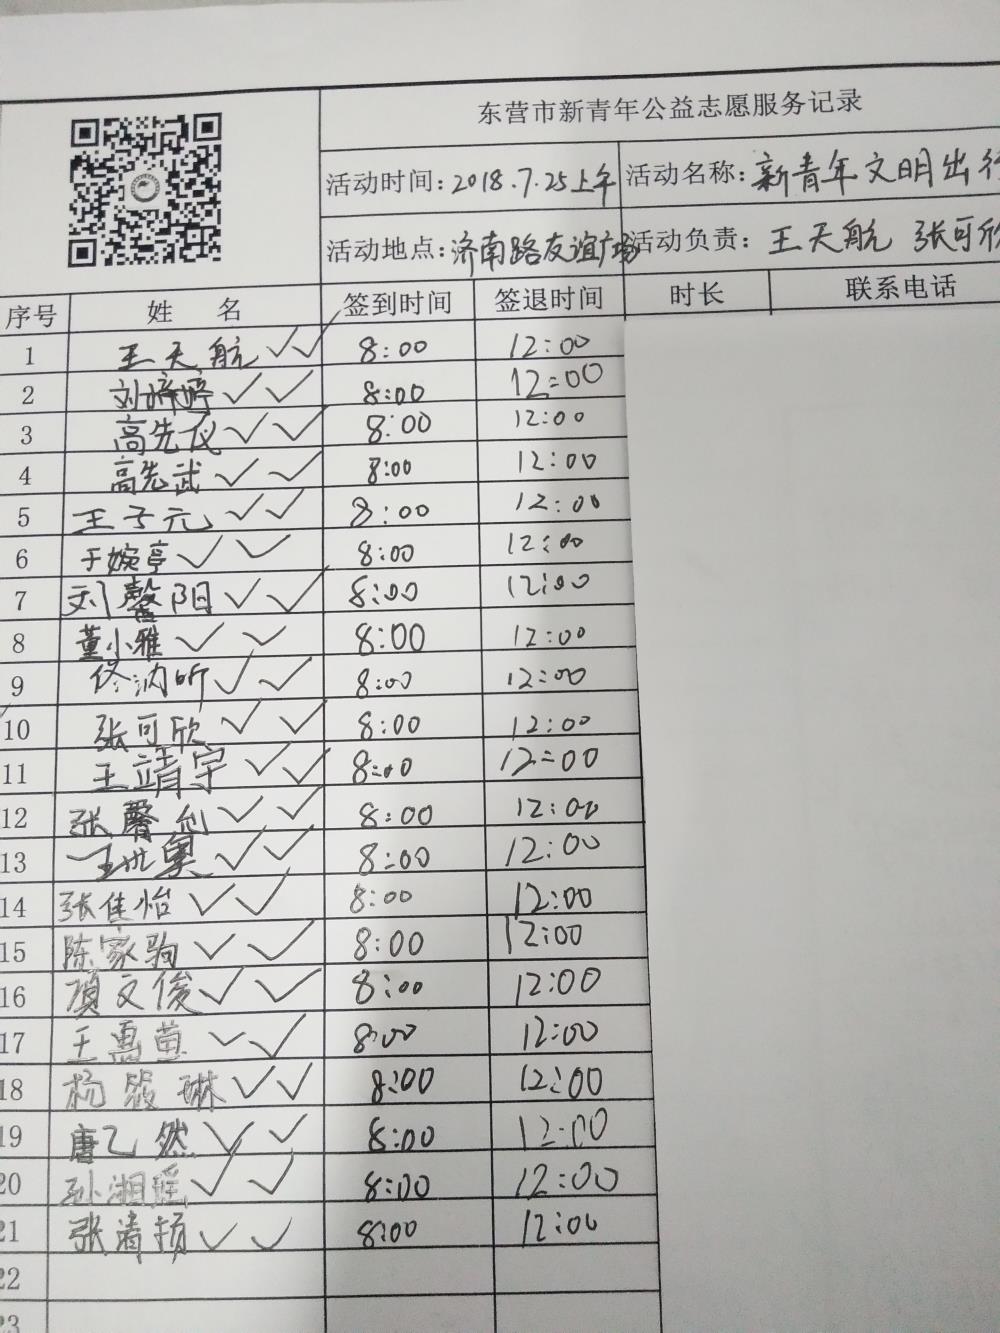 东营市新青年公益志愿服务记录
活动时间:2018.7.25上午 活动名称:新青年文明出行
活动地点:济南路友谊广场 活动负责:王天航 张可欣
序号 姓 名 签到时间 签退时间 时长 联系电话
1 王天航 8:00 12:00
2 刘婷婷 8:00 12:00
3 高先仪 8:00 12:00
4 高先武 8:00 12:00
5 王子元 8:00 12:00
6 于婉亭 8:00 12:00
7 刘馨阳 8:00 12:00
8 董小雅 8:00 12:00
9 8:00 12:00
10 张可欣 8:00 12:00
11 王靖宇 8:00 12:00
12 张馨 8:00 12:00
13 8:00 12:00
14 张佳怡 8:00 12:00
15 陈家驹 8:00 12:00
16 项文俊 8:00 12:00
17 王惠萱 8:00 12:00
18 杨筱琳 8:00 12:00
19 唐乙然 8:00 12:00
20 孙湘瑶 8:00 12:00
21 张清 8:00 12:00
22
23